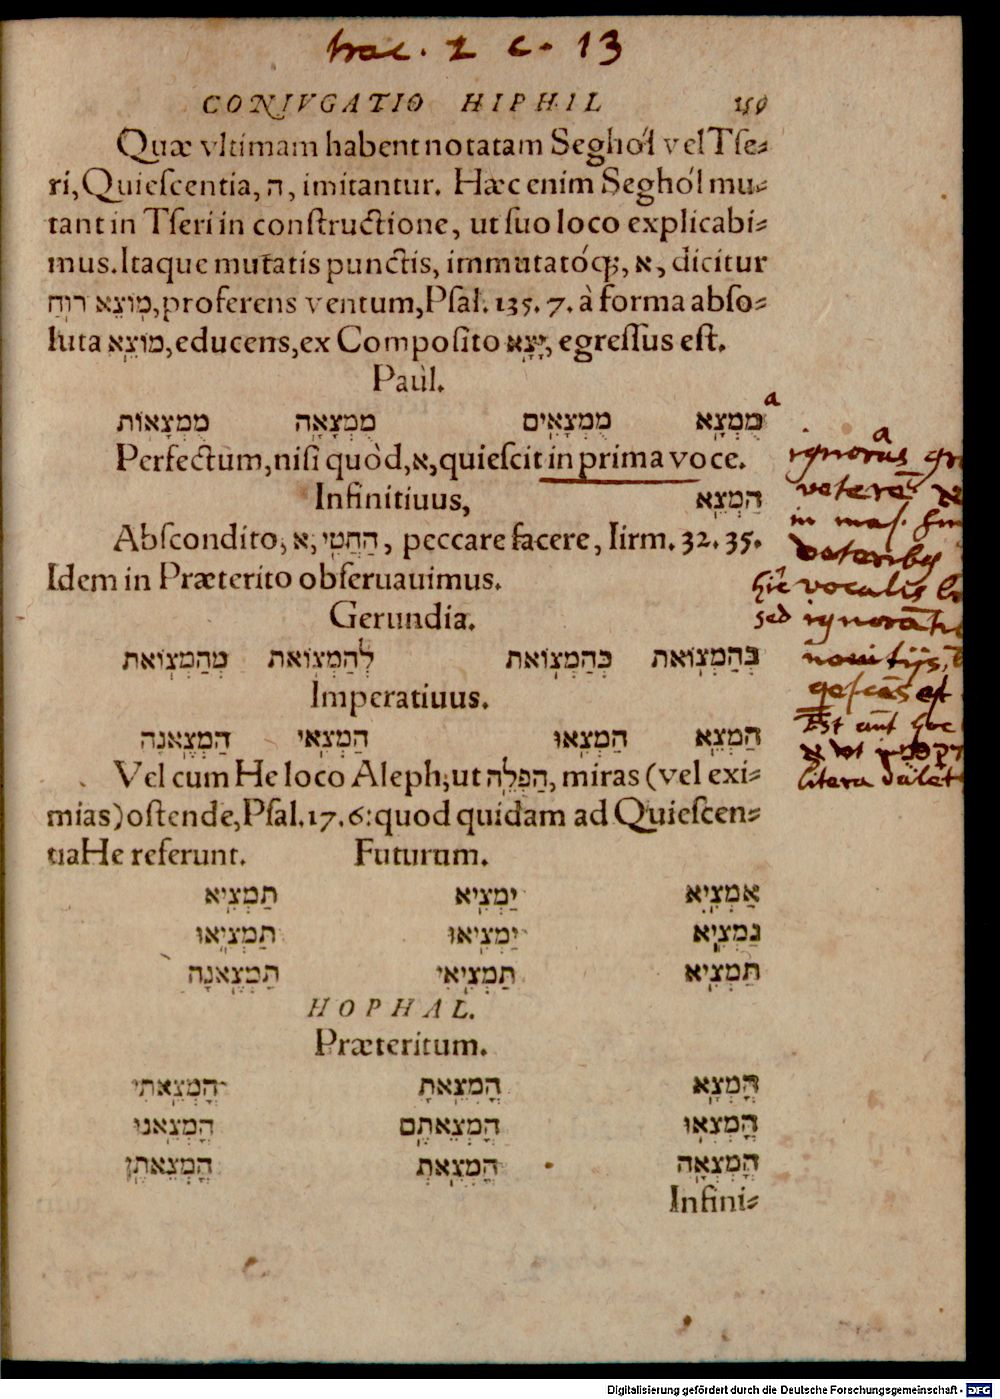 trac. 2 c. 13
CONIVGATIO HIPHIL 159
Quæ vltimam habent notatam Seghól vel Tse-
rí, Quiescentia, ה, imitantur. Hæc enim Seghól mu-
tant in Tseri in constructione, ut suo loco explicabi-
mus. Itaque mutatis punctis, immutatóq;, א, dicitur
מוֹצֵא רוּחַ, proferens ventum, Psal. 135. 7. à forma abso-
luta מוֹצֵא, educens, ex Composito יָצָא, egressus est.
Paùl.
מֻמְצָא מֻמְצָאִים מֻמְצָאָה מֻמְצָאוֹת a
Perfectum, nisi quòd, א, quiescit in prima voce.
Infinitiuus, הַמְצֵא
Abscondito, א, הַחֲטִי, peccare facere, Iirm. 32. 35.
Idem in Præterito obseruauimus.
Gerundia.
בְּהַמְצוֹאת כְּהַמְצוֹאת לְהַמְצוֹאת מְהַמְצוֹאת
Imperatiuus.
הַמְצֵא הַמְצְאוּ הַמְצְאִי הַמְצֶאנָה
Vel cum He loco Aleph, ut הַפְלֵה, miras (vel exi-
mias) ostende, Psal. 17. 6: quod quidam ad Quiescen-
tia He referunt. Futurum.
אַמְצִיא יַמְצִיא תַמְצִיא
נַמְצִיא יַמְצִיאוּ תַמְצִיאוּ
תַּמְצִיא תַּמְצִיאִי תַמְצֶאנָה
HOPHAL.
Præteritum.
הָמְצָא הָמְצֵאתָ הָמְצֵאתִי
הָמְצְאוּ הָמְצֵאתֶם הָמְצֵאנוּ
הָמְצְאָה הָמְצֵאתְ הָמְצֵאתֶן
Infini-
a
ignoras
veterē א
in mas.
veteribus
hic vocalis
sed ignorāt
nouitijs,
qescēs est
Est aut hoc
א
litera
Digitalisierung gefördert durch die Deutsche Forschungsgemeinschaft - DFG